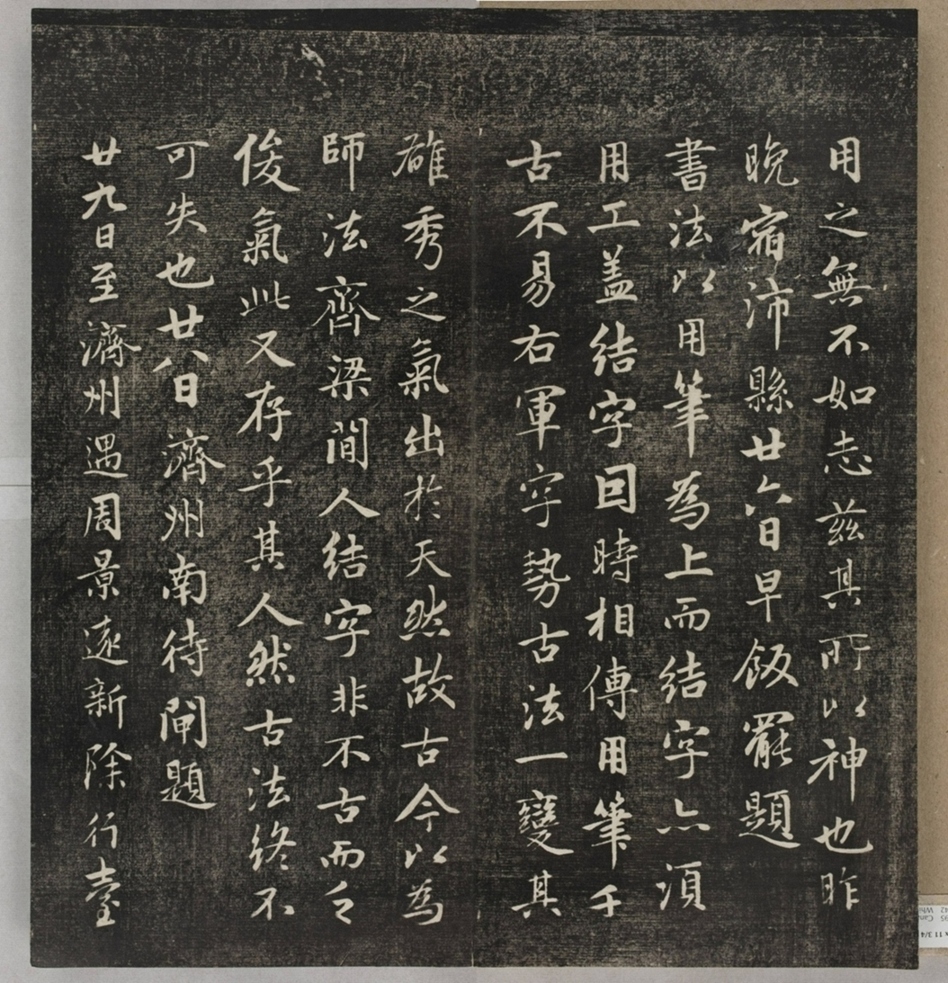 用之無不如志茲其所以神也昨
晚宿沛縣廿六日早飯罷題
書法以用筆為上而結字亦須
用工盖結字因時相傳用筆千
古不易右軍字勢古法一變其
雄秀之氣出於天然故古今以為
師法齊梁間人結字非不古而乏
俊氣此又存乎其人然古法終不
可失也廿八日濟州南待閘題
廿九日至濟州遇周景遠新除行臺